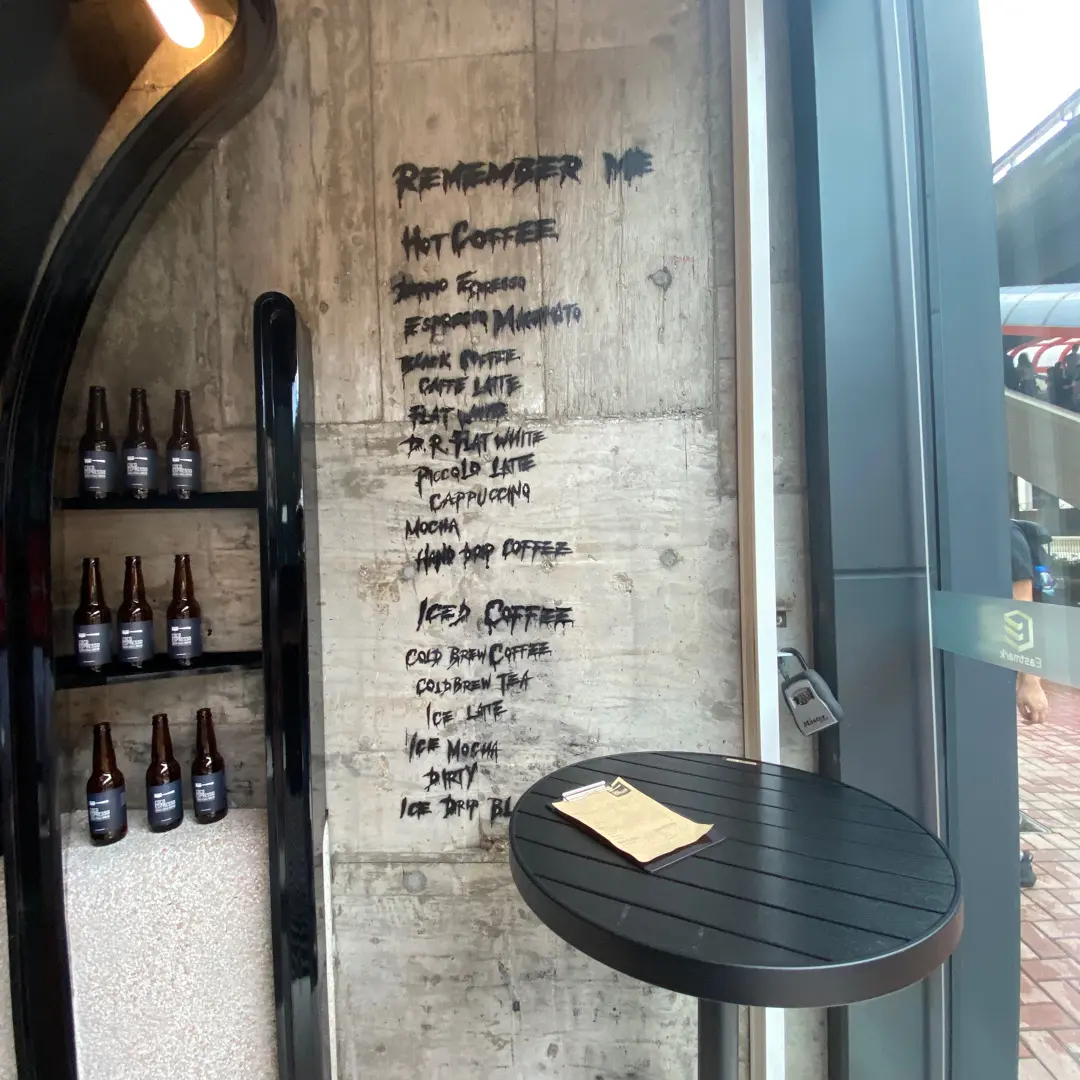 REMEMBER ME
HOT COFFEE
ESPRESSO
ESPRESSO MACCHIATO
BLACK COFFEE
CAFFE LATTE
FLAT WHITE
D.R. FLAT WHITE
PICCOLO LATTE
CAPPUCCINO
MOCHA
HAND DRIP COFFEE
ICED COFFEE
COLD BREW COFFEE
COLDBREW TEA
ICE LATTE
ICE MOCHA
DIRTY
ICE DRIP BL
Eastmark
Master